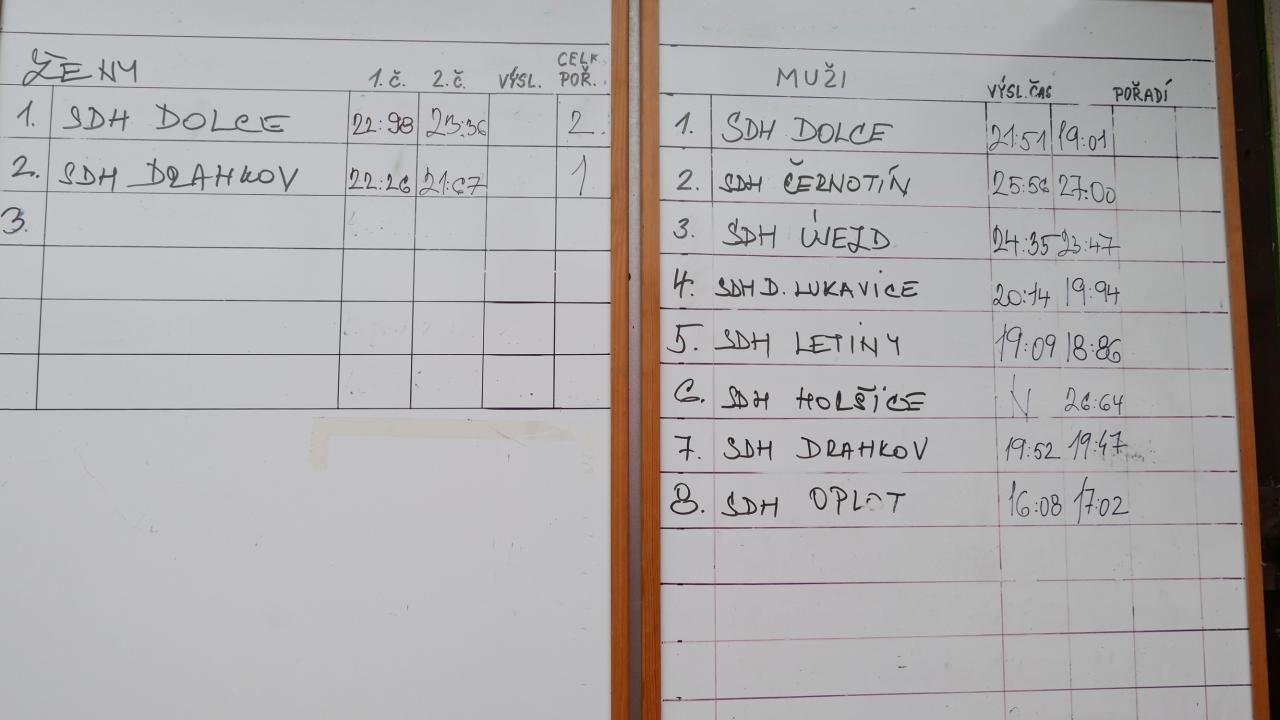 ŽENY 1.č. 2.č. VÝSL. CELK. POŘ.
1. SDH DOLCE 22:98 23:36 2.
2. SDH DRAHKOV 22:26 21:67 1
3.
MUŽI VÝSL.ČAS POŘADÍ
1. SDH DOLCE 21:51 19:01
2. SDH ČERNOTÍN 25:56 27:00
3. SDH ÚJEZD 24:35 23:47
4. SDH D. LUKAVICE 20:14 19:94
5. SDH LETINY 19:09 18:86
6. SDH HOLŠICE N 26:64
7. SDH DRAHKOV 19:52 19:47
8. SDH OPLOT 16:08 17:02